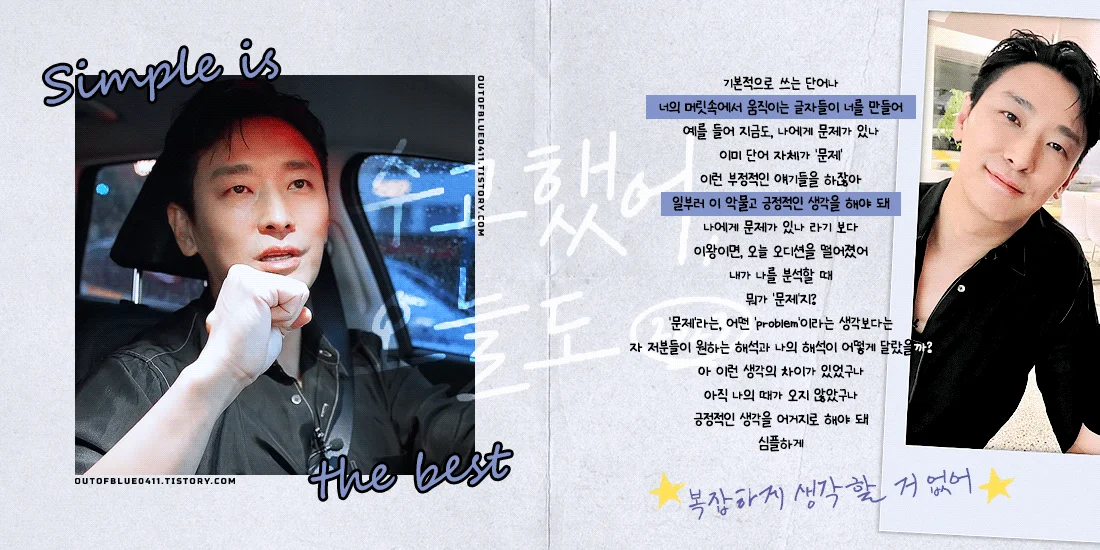 Simple is
OUTOFBLUE0411.TISTORY.COM
OUTOFBLUE0411.TISTORY.COM
the best
수고했어,
오늘도
기본적으로 쓰는 단어나
너의 머릿속에서 움직이는 글자들이 너를 만들어
예를 들어 지금도, 나에게 문제가 있나
이미 단어 자체가 '문제'
이런 부정적인 얘기들을 하잖아
일부러 이 악물고 긍정적인 생각을 해야 돼
나에게 문제가 있나 라기 보다
이왕이면, 오늘 오디션을 떨어졌어
내가 나를 분석할 때
뭐가 '문제'지?
'문제'라는, 어떤 'problem'이라는 생각보다는
자 저분들이 원하는 해석과 나의 해석이 어떻게 달랐을까?
아 이런 생각의 차이가 있었구나
아직 나의 때가 오지 않았구나
긍정적인 생각을 어거지로 해야 돼
심플하게
복잡하게 생각할 거 없어